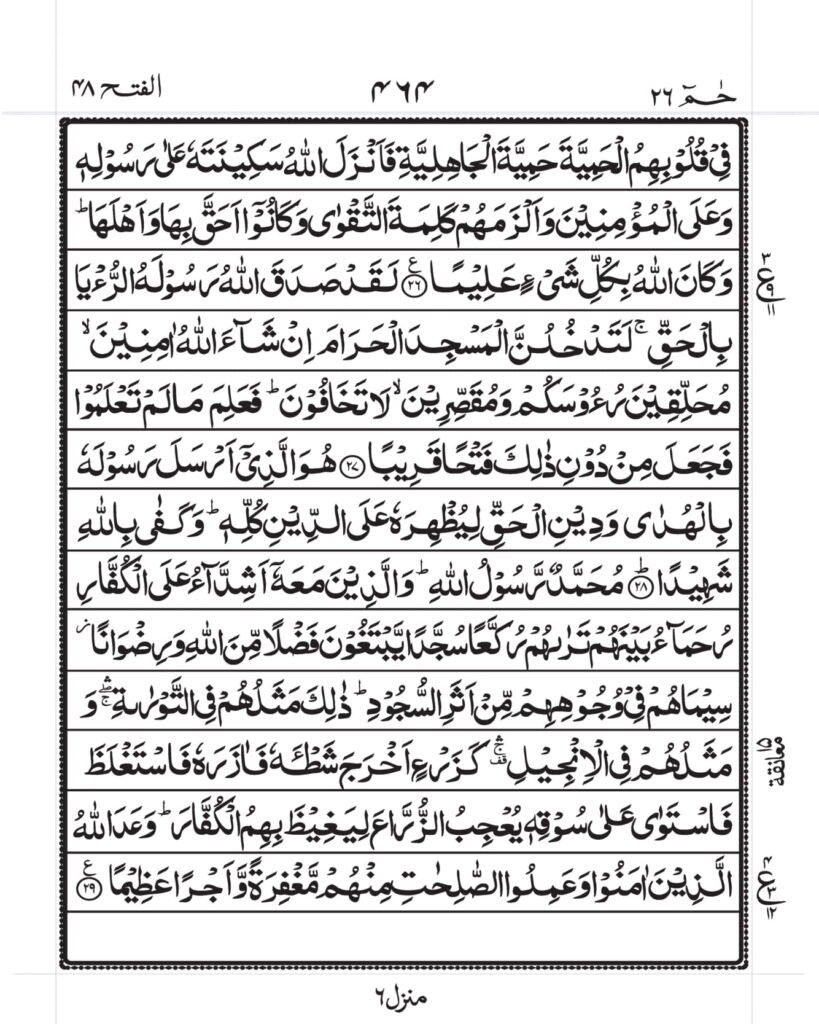 حٰمٓ ٢٦ ۴۶۴ الفتح ۴٨
فِیْ قُلُوْبِهِمُ الْحَمِیَّةَ حَمِیَّةَ الْجَاهِلِیَّةِ فَاَنْزَلَ اللّٰهُ سَكِیْنَتَهٗ عَلٰی رَسُوْلِهٖ
وَعَلَی الْمُؤْمِنِیْنَ وَاَلْزَمَهُمْ كَلِمَةَ التَّقْوٰی وَكَانُوْۤا اَحَقَّ بِهَا وَاَهْلَهَا ؕ
وَكَانَ اللّٰهُ بِكُلِّ شَیْءٍ عَلِیْمًا ع ﴿٢٦﴾ لَقَدْ صَدَقَ اللّٰهُ رَسُوْلَهُ الرُّءْیَا
٣ ع ٩ ١١
بِالْحَقِّ ۚ لَتَدْخُلُنَّ الْمَسْجِدَ الْحَرَامَ اِنْ شَآءَ اللّٰهُ اٰمِنِیْنَ ۙ
مُحَلِّقِیْنَ رُءُوْسَكُمْ وَمُقَصِّرِیْنَ ۙ لَا تَخَافُوْنَ ؕ فَعَلِمَ مَا لَمْ تَعْلَمُوْا
فَجَعَلَ مِنْ دُوْنِ ذٰلِكَ فَتْحًا قَرِیْبًا ﴿٢٧﴾ هُوَ الَّذِیْۤ اَرْسَلَ رَسُوْلَهٗ
بِالْهُدٰی وَدِیْنِ الْحَقِّ لِیُظْهِرَهٗ عَلَی الدِّیْنِ كُلِّهٖ ؕ وَكَفٰی بِاللّٰهِ
شَهِیْدًا ؕ ﴿٢٨﴾ مُحَمَّدٌ رَّسُوْلُ اللّٰهِ ؕ وَالَّذِیْنَ مَعَهٗۤ اَشِدَّآءُ عَلَی الْكُفَّارِ
رُحَمَآءُ بَیْنَهُمْ تَرٰىهُمْ رُكَّعًا سُجَّدًا یَّبْتَغُوْنَ فَضْلًا مِّنَ اللّٰهِ وَرِضْوَانًا ؗ
سِیْمَاهُمْ فِیْ وُجُوْهِهِمْ مِّنْ اَثَرِ السُّجُوْدِ ؕ ذٰلِكَ مَثَلُهُمْ فِی التَّوْرٰىةِ ۛۖۚ وَ
مَثَلُهُمْ فِی الْاِنْجِیْلِ ۛ۫ۚ كَزَرْعٍ اَخْرَجَ شَطْـَٔهٗ فَاٰزَرَهٗ فَاسْتَغْلَظَ
معانقة ١٥
فَاسْتَوٰی عَلٰی سُوْقِهٖ یُعْجِبُ الزُّرَّاعَ لِیَغِیْظَ بِهِمُ الْكُفَّارَ ؕ وَعَدَ اللّٰهُ
الَّذِیْنَ اٰمَنُوْا وَعَمِلُوا الصّٰلِحٰتِ مِنْهُمْ مَّغْفِرَةً وَّاَجْرًا عَظِیْمًا ع ﴿٢٩﴾
۴ ع ٣ ١٢
منزل ۶